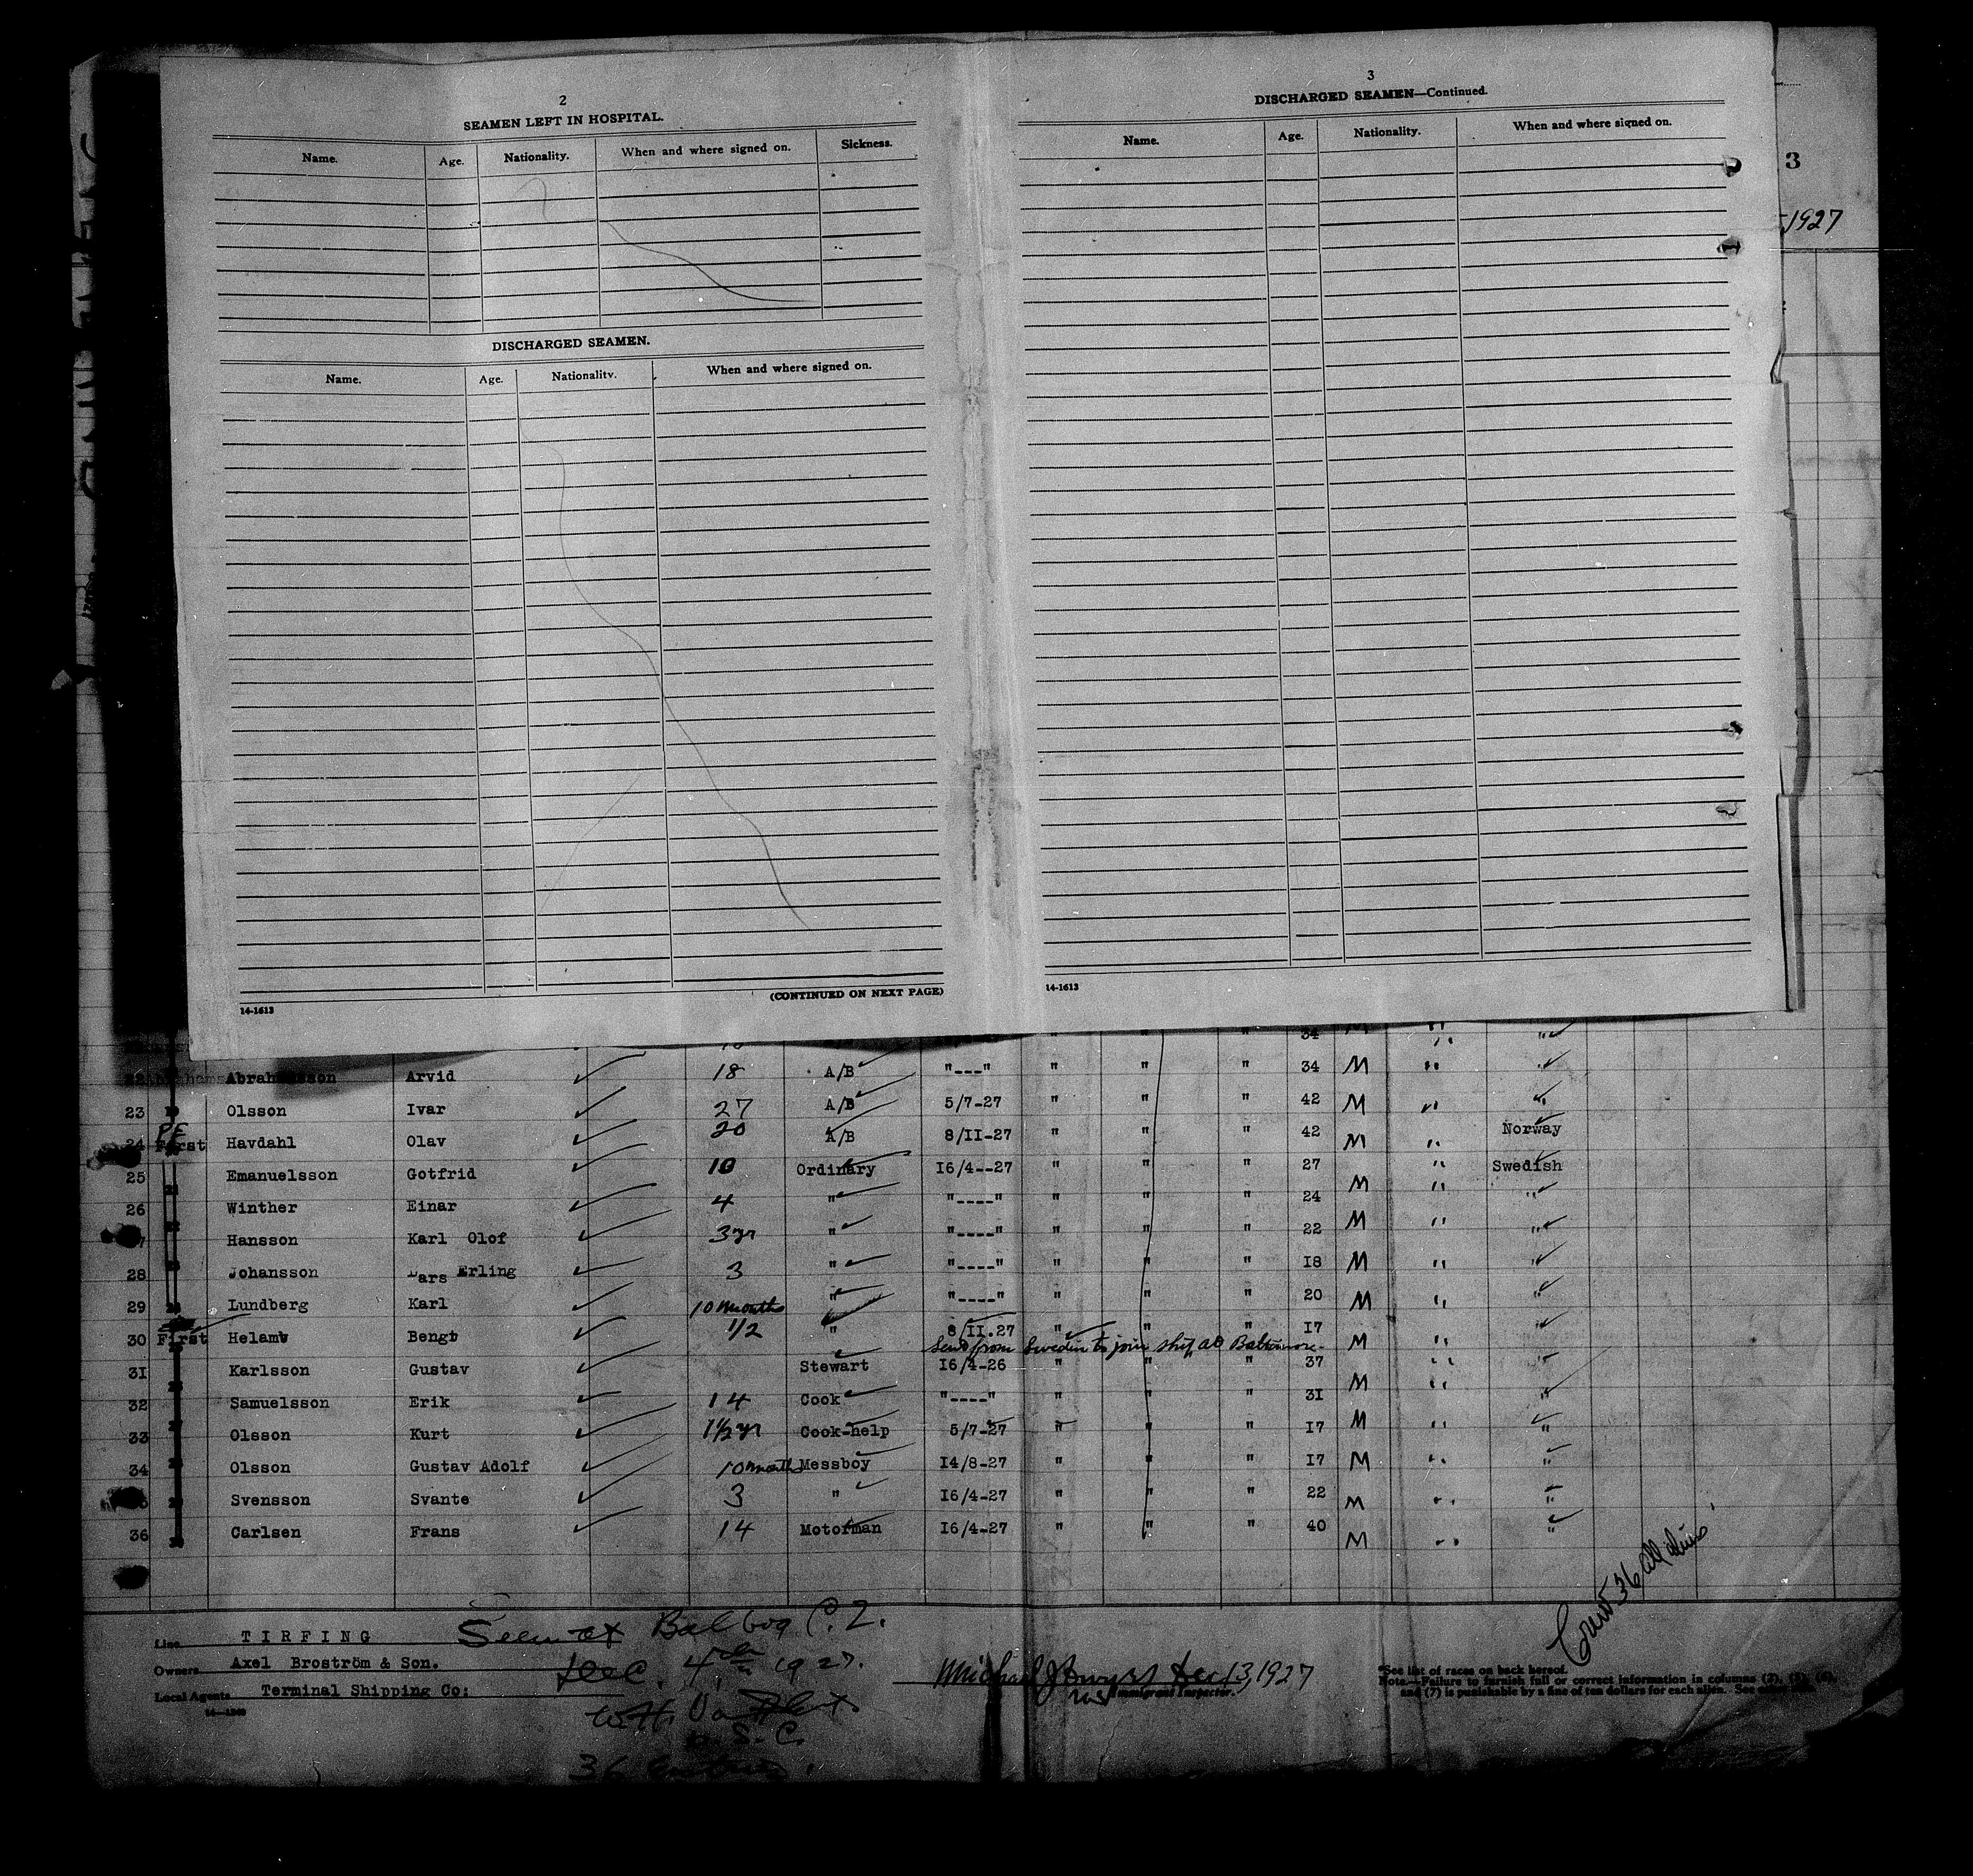 2
SEAMEN LEFT IN HOSPITAL.
Name. Age. Nationality. When and where signed on. Sickness.
DISCHARGED SEAMEN.
Name. Age. Nationality. When and where signed on.
(CONTINUED ON NEXT PAGE)
14-1613
3
DISCHARGED SEAMEN—Continued.
Name. Age. Nationality. When and where signed on.
14-1613
3
1927
34 M " "
Arvid 18 A/B "---" " " " 34 M " "
23 Olsson Ivar 27 A/B 5/7-27 " " " 42 M " "
24 First Havdahl Olav 20 A/B 8/II-27 " " " 42 M " Norway
25 Emanuelsson Gotfrid 10 Ordinary 16/4--27 " " " 27 M " Swedish
26 Winther Einar 4 " "----" " " " 24 M " "
Hansson Karl Olof 3 yr " "----" " " " 22 M " "
28 Johansson Lars Erling 3 " "----" " " " 18 M " "
29 Lundberg Karl 10 months " "----" " " " 20 M " "
30 First Helamb Bengt 1/2 " 8/II.27 " " " 17 M " "
Sent from Sweden to join ship at Baltimore
31 Karlsson Gustav Stewart 16/4-26 " " " 37 M " "
32 Samuelsson Erik 14 Cook "----" " " " 31 M " "
33 Olsson Kurt 1 1/2 yr Cook-help 5/7-27 " " " 17 M " "
34 Olsson Gustav Adolf 10 months Messboy 14/8-27 " " " 17 M " "
Svensson Svante 3 " 16/4-27 " " " 22 M " "
36 Carlsen Frans 14 Motorman 16/4-27 " " " 40 M " "
Crew 36 all
Line TIRFING
Owners Axel Broström & Son.
Local Agents Terminal Shipping Co:
Seen at Balboa C.Z.
Dec. 4th 1927.
36
Michael Dec 13, 1927
Immigrant Inspector.
*See list of races on back hereof.
Note.—Failure to furnish full or correct information in columns (2), (5), (6),
and (7) is punishable by a fine of ten dollars for each alien. See